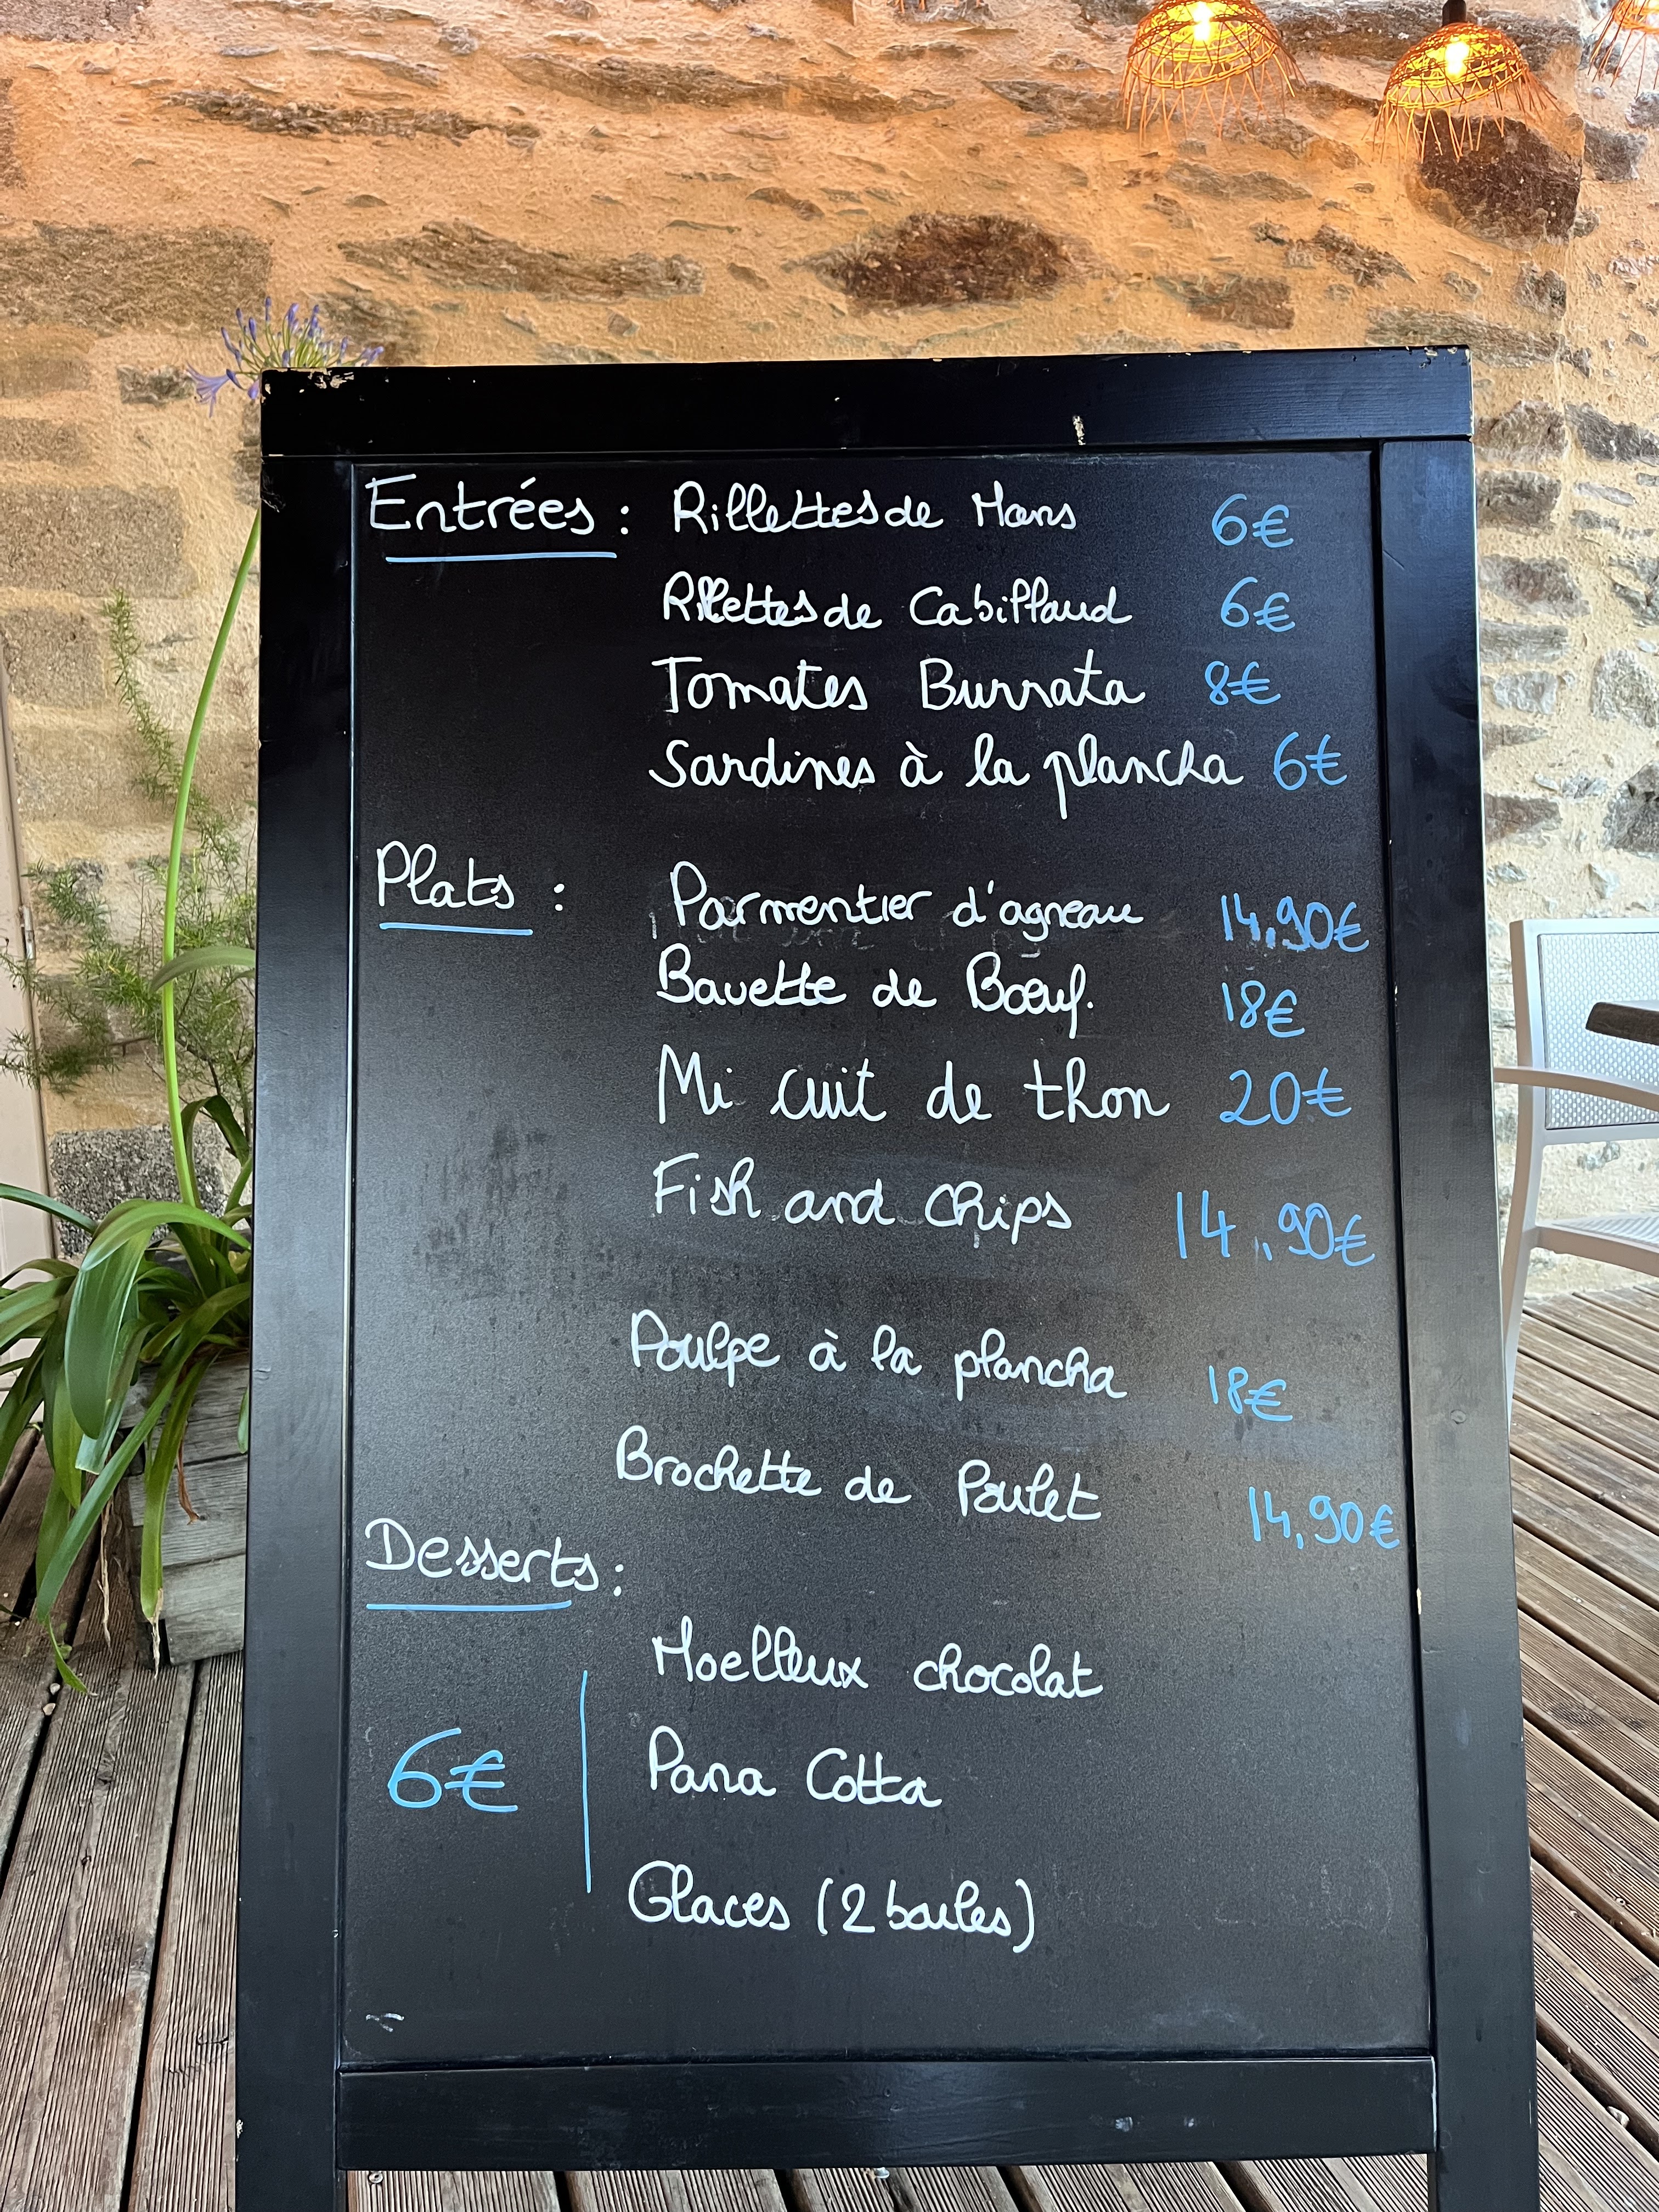 Entrées : Rillettes de Mans 6€
Rillettes de Cabillaud 6€
Tomates Burrata 8€
Sardines à la plancha 6€
Plats : Parmentier d'agneau 14,90€
Bavette de Bœuf. 18€
Mi cuit de thon 20€
Fish and chips 14,90€
Poulpe à la plancha 18€
Brochette de Poulet 14,90€
Desserts :
Moelleux chocolat
6€ Pana Cotta
Glaces (2 boules)